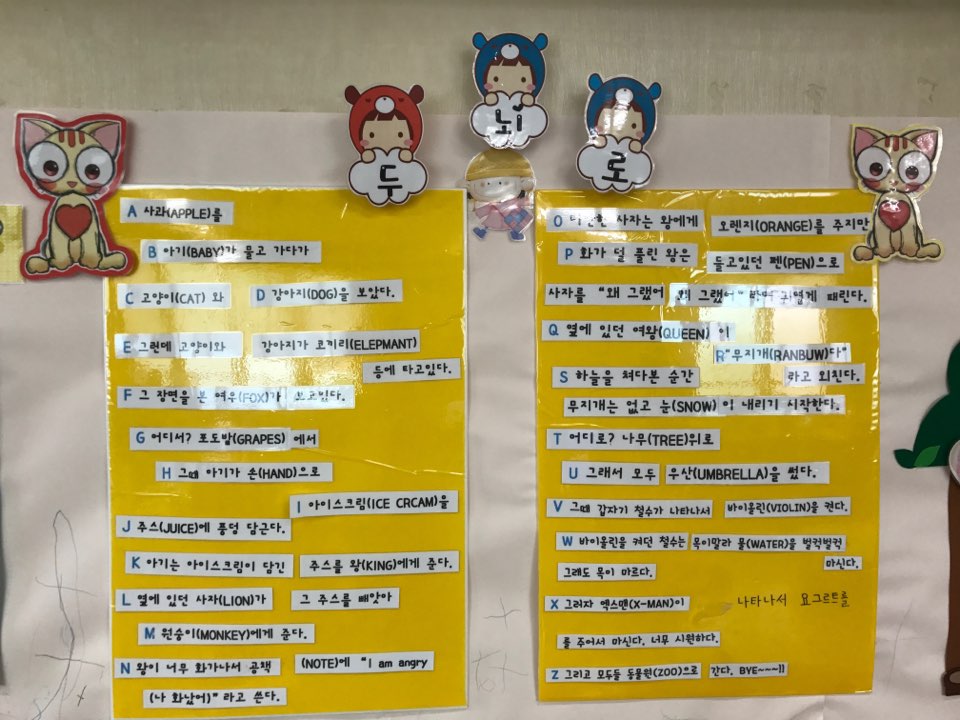 두
뇌
로
A 사과(APPLE)를
B 아기(BABY)가 물고 가다가
C 고양이(CAT) 와 D 강아지(DOG)을 보았다.
E 그런데 고양이와 강아지가 코끼리(ELEPMANT)
등에 타고있다.
F 그 장면을 본 여우(FOX)가 보고있다.
G 어디서? 포도밭(GRAPES) 에서
H 그때 아기가 손(HAND)으로
I 아이스크림(ICE CRCAM)을
J 주스(JUICE)에 풍덩 담근다.
K 아기는 아이스크림이 담긴 주스를 왕(KING)에게 준다.
L 옆에 있던 사자(LION)가 그 주스를 빼앗아
M 원숭이(MONKEY)에게 준다.
N 왕이 너무 화가나서 공책 (NOTE)에 "I am angry
(나 화났어)" 라고 쓴다.
O 사자는 왕에게 오렌지(ORANGE)를 주지만
P 화가 덜 풀린 왕은 들고있던 펜(PEN)으로
사자를 "왜 그랬어 왜 그랬어" 귀엽게 때린다.
Q 옆에 있던 여왕(QUEEN) 이
R "무지개(RANBUW)다"
S 하늘을 쳐다본 순간 라고 외친다.
무지개는 없고 눈(SNOW) 이 내리기 시작한다.
T 어디로? 나무(TREE)위로
U 그래서 모두 우산(UMBRELLA)을 썼다.
V 그때 갑자기 철수가 나타나서 바이올린(VIOLIN)을 켠다.
W 바이올린을 켜던 철수는 목이말라 물(WATER)을 벌컥벌컥
마신다.
그래도 목이 마르다.
X 그러자 엑스맨(X-MAN)이 나타나서 요그르트를
를 주어서 마신다. 너무 시원하다.
Z 그리고 모두들 동물원(ZOO)으로 간다. BYE~~~!!